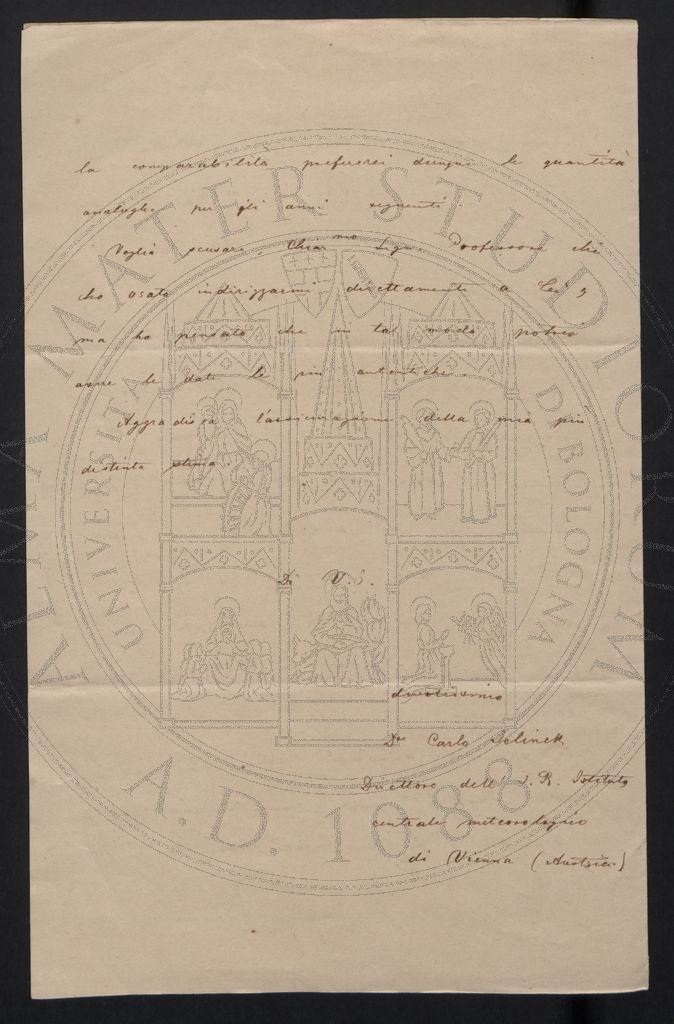 la comparabilità preferirei dunque le quantità
analoghe per gli anni seguenti.
Voglia scusare, Chiarmo Sign. Professore che
ho osato indirizzarmi direttamente a Lei,
ma ho pensato che in tal modo potrei
avere le date le più autentiche.
Aggradisca l'assicurazione della mia più
distinta stima.
Di V. S.
divotissimo
Dr Carlo Jelinek
Direttore dell' I. R. Istituto
centrale meteorologico
di Vienna (Austria)
ALMA MATER STUDIORUM
UNIVERSITÀ DI BOLOGNA
A.D. 1088